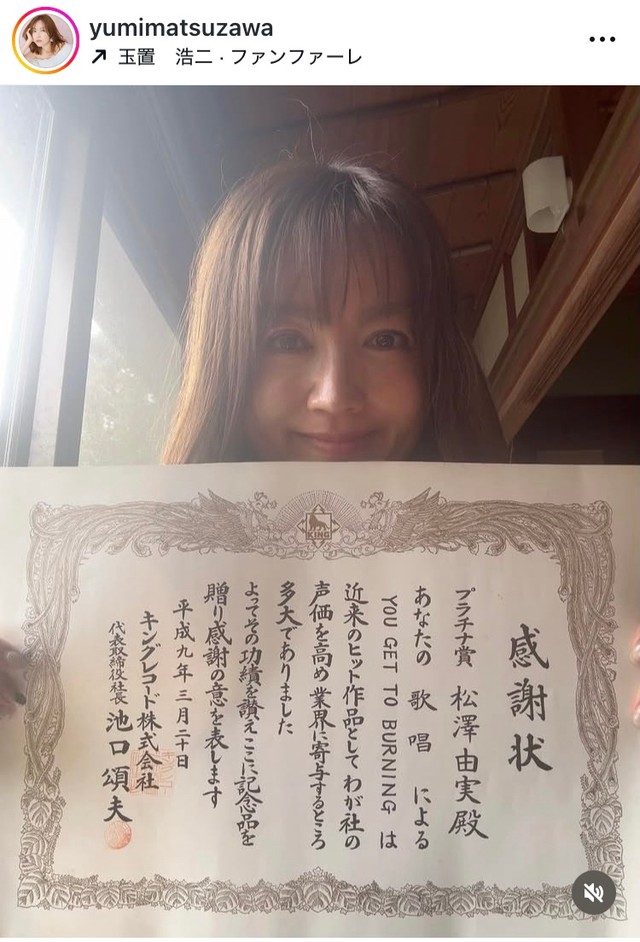 yumimatsuzawa
玉置 浩二・ファンファーレ
KING
感謝状
プラチナ賞 松澤由実殿
あなたの歌唱による
YOU GET TO BURNING は
近来のヒット作品としてわが社の
声価を高め業界に寄与するところ
多大でありました
よってその功績を讃えここに記念品を
贈り感謝の意を表します
平成九年三月二十日
キングレコード株式会社
代表取締役社長 池口頌夫